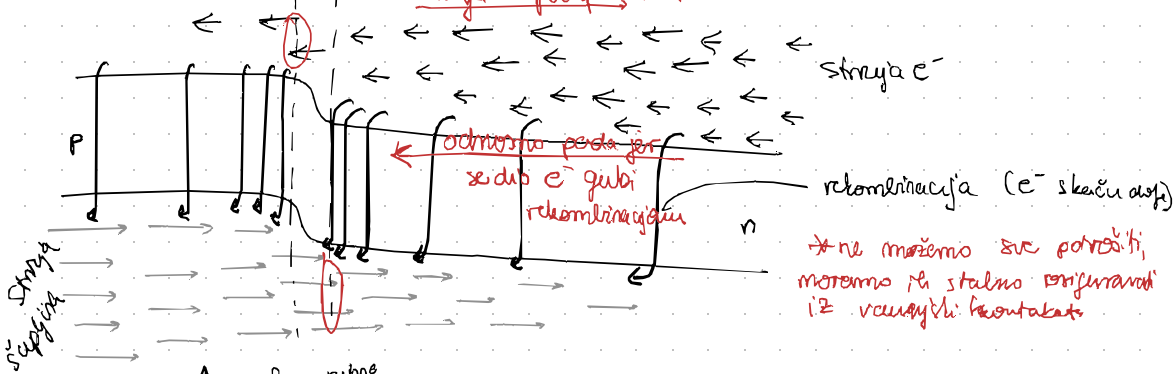 struja e⁻
p
odnosno pada jer
se dio e⁻ gubi
rekombinacijom
rekombinacija (e⁻ skaču dolje)
n
*ne možemo sve potrošiti,
moramo ih stalno osiguravati
iz vanjskih kontakata
struja
šupljina